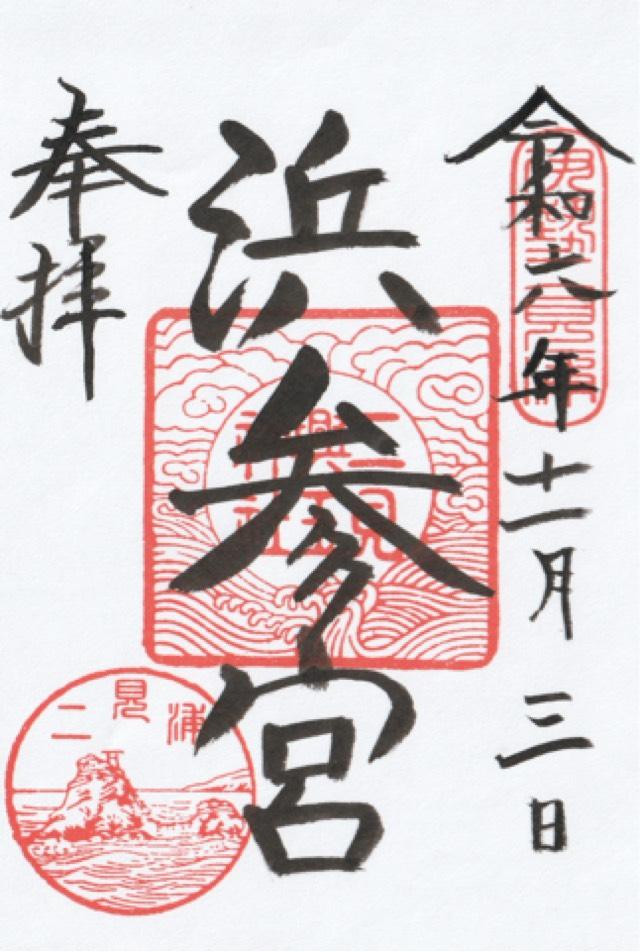 令和六年十一月三日
伊勢二見浦
浜参宮
二見
興玉
神社
奉拝
二見浦